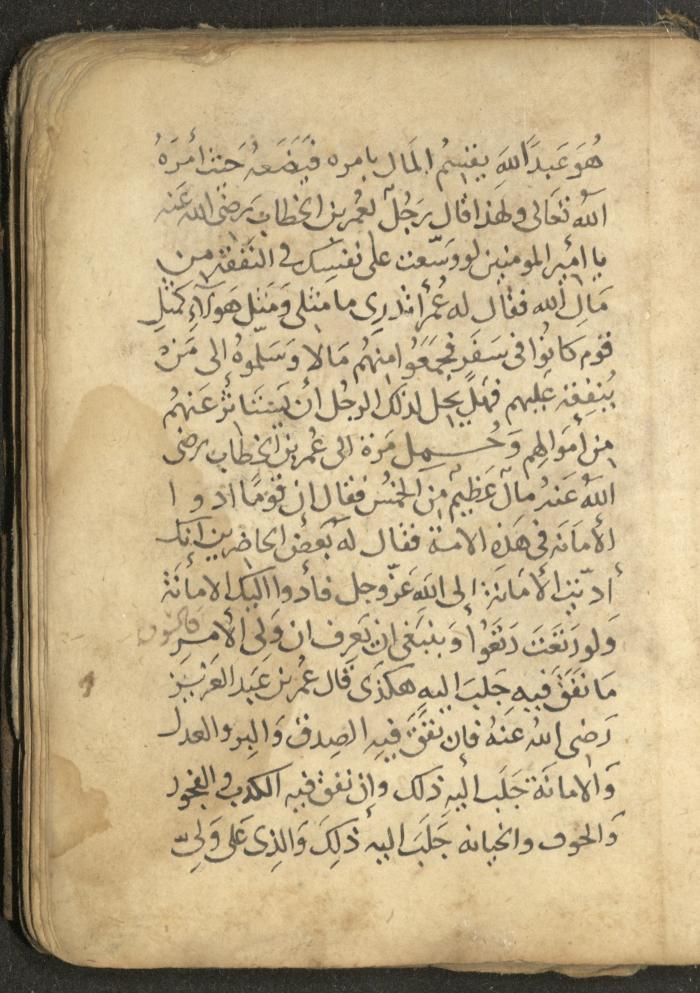 هُوَ عَبدَ اللهِ يقسِمُ المَال بامره فيَضَعهُ حَيث أمَرَهُ
اللهُ تعَالى ولهذا قال رَجُلٌ لعُمر بن الخطاب رَضى الله عَنه
يا امير المومنين لو وَسّعت على نفسِك فى النفقة من
مَالِ الله فقال له عُمر أتدرِى ما مثلى وَمَثل هَولآءِ كمَثل
قوم كانُوا فى سَفَر فجمَعُوا منهُم مَالا وَسَلّموهُ الى مَن
يُنفِقه عليهم فهَل يحل لذلك الرجُل أن يَستَاثر عَنهُم
مِن أموَالهِم وَحُمِل مَرة الى عُمر بن الخطاب رضى
اللهُ عَنهُ مالٌ عَظيمٌ مِن الخمُس فقال ان قومًا ادوا
الأمَانَه فى هَذِه الامة فقال لهُ بَعضُ الحاضرين انك
أدّيت الأمَانة الى اللهِ عَزّ وجل فأدوا اليك الامانَة
وَلو رَتَعتَ رَتعُوا وَينبغى ان يَعرف ان وَلى الأمرِ كالسُوق
مَا نفقَ فيهِ جَلبَ اليهِ هكذى قال عُمر بن عَبد العَزيز
رَضى اللهُ عنهُ فان نفقَ فيهِ الصِدق وَالبر والعدل
وَالامانَة جَلَب اليهِ ذلك وإن نفق فيه الكذب والفجُور
وَالجور والخيانه جَلَبَ اليه ذلِكَ وَالذِى عَلى وَلىّ